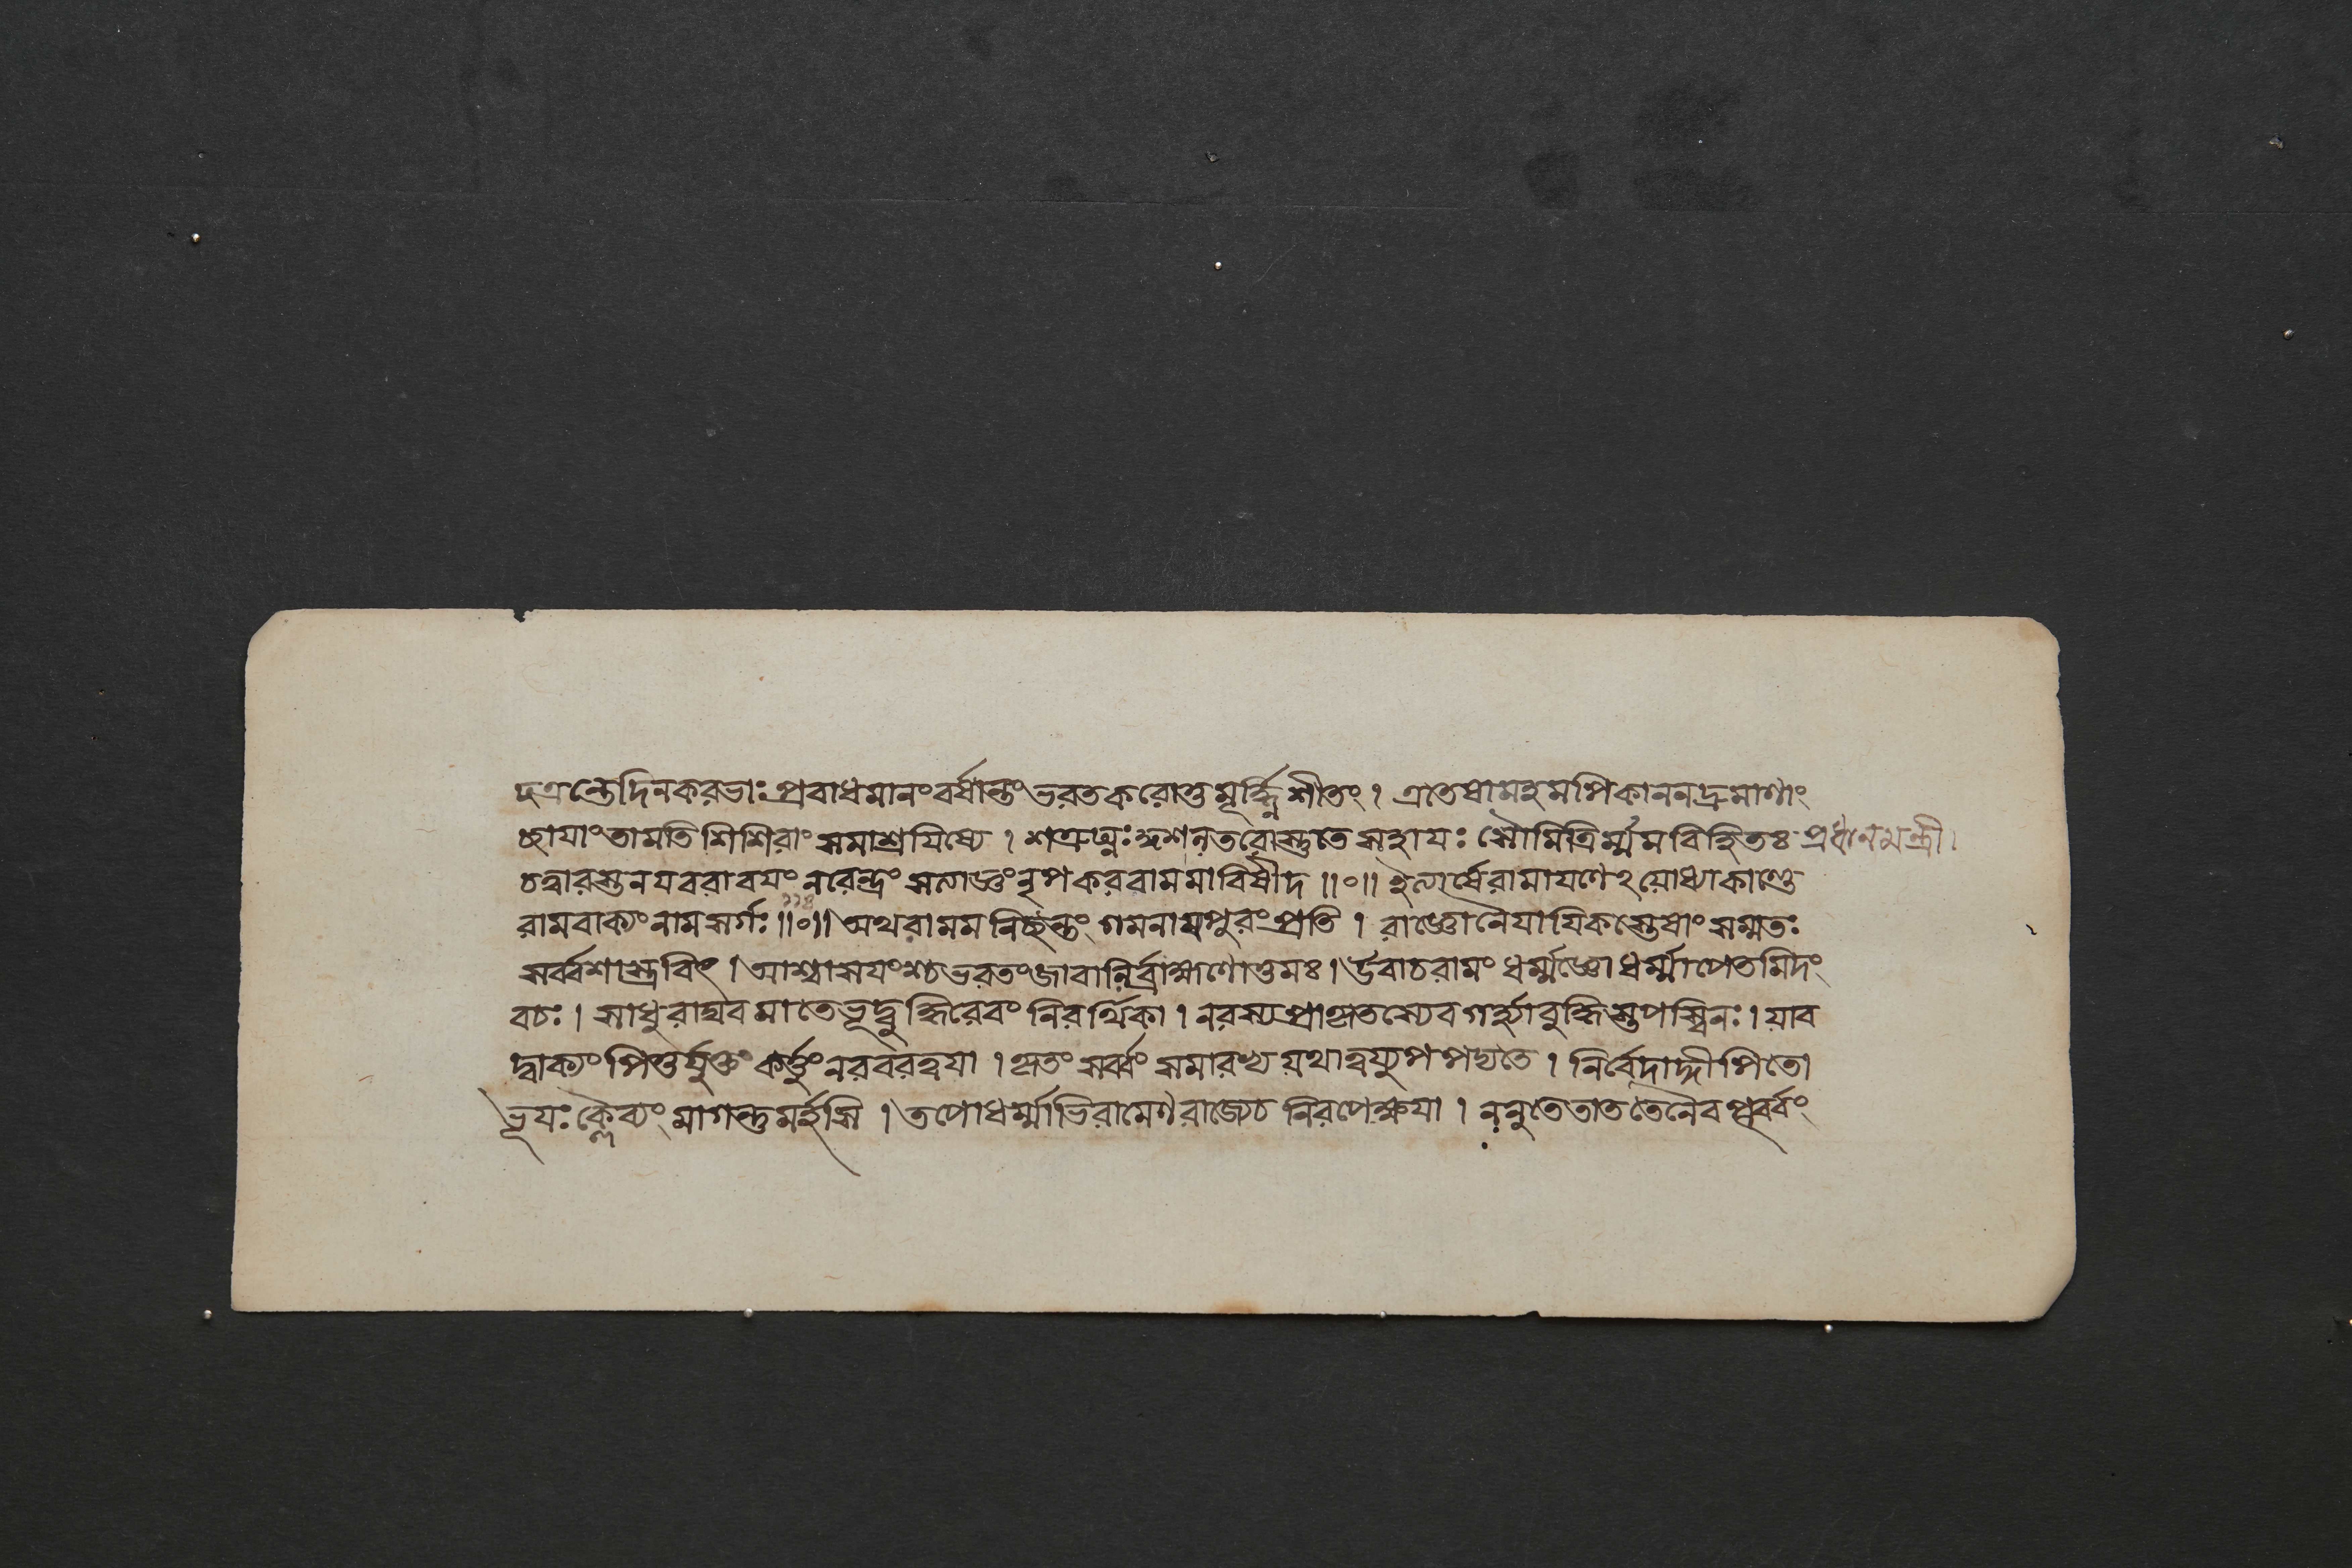 চ্ছত্রন্তে দিনকরভাঃ প্রবাধমানং বর্ষান্তং ভরত করোতু মূর্দ্ধ্নি শীতং । এতেষামহমপি কাননদ্রুমাণাং
ছায়াং তামতিশিশিরাং সমাশ্রয়িষ্যে । শত্রুঘ্নঃ সহায়ঃ সৌমিত্রির্ম্মম বিহিতঃ প্রধানমন্ত্রী ।
চত্বারস্তনয়বরা বয়ং নরেন্দ্রং সত্যস্থং নৃপ করবাম মা বিষীদ ॥०॥ ইত্যার্ষে রামায়ণেঽয়োধ্যাকাণ্ডে
রামবাক্যং নাম সর্গঃ ॥०॥ অথ রামমনিচ্ছন্তং গমনায় পুরং প্রতি । রাজ্ঞো নৈয়ায়িকস্তেষাং সম্মতঃ
সর্ব্বশাস্ত্রবিৎ । আশ্বাসয়ংশ্চ ভরতং জাবালির্ব্রাহ্মণোত্তমঃ । উবাচ রামং ধর্ম্মজ্ঞো ধর্ম্মাপেতমিদং
বচঃ । সাধু রাঘব মা তে ভূদ্বুদ্ধিরেবং নিরর্থিকা । নরস্য প্রাকৃতস্যেব গর্হ্যা বুদ্ধিস্তপস্বিনঃ । যাব
দ্বাক্যং পিতুর্যুক্তং কর্ত্তুং নরবর ত্বয়া । কৃতং সর্ব্বং সমারভ্য যথা ত্বয়্যুপপদ্যতে । নির্বেদাদ্দীপিতো
ভূয়ঃ ক্লৈব্যং মা গন্তুমর্হসি । তপোধর্ম্মাভিরামেণ রাজ্যে চ নিরপেক্ষয়া । ননু তে তাত তেনৈব পূর্ব্বং